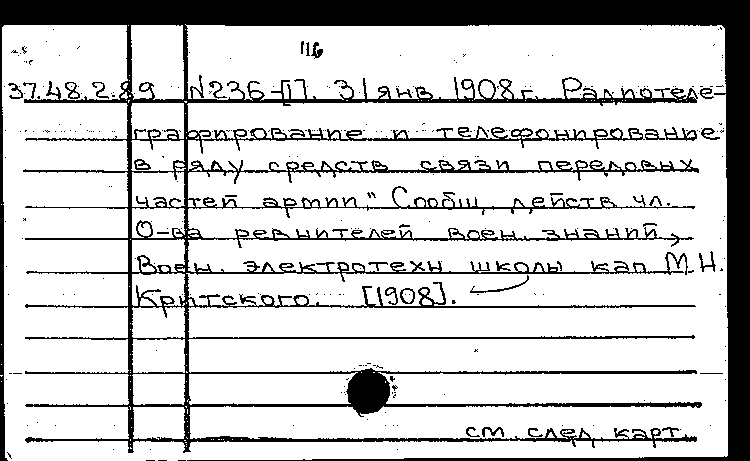 116
37.48.2.89 N236-[17. 31 янв. 1908 г. Радиотеле-
графирование и телефонирование
в ряду средств связи передовых
частей армии," Сообщ. действ. чл.
О-ва ревнителей воен. знаний,
Воен. электротехн. школы кап. М.Н.
Критского. [1908].
см. след. карт.